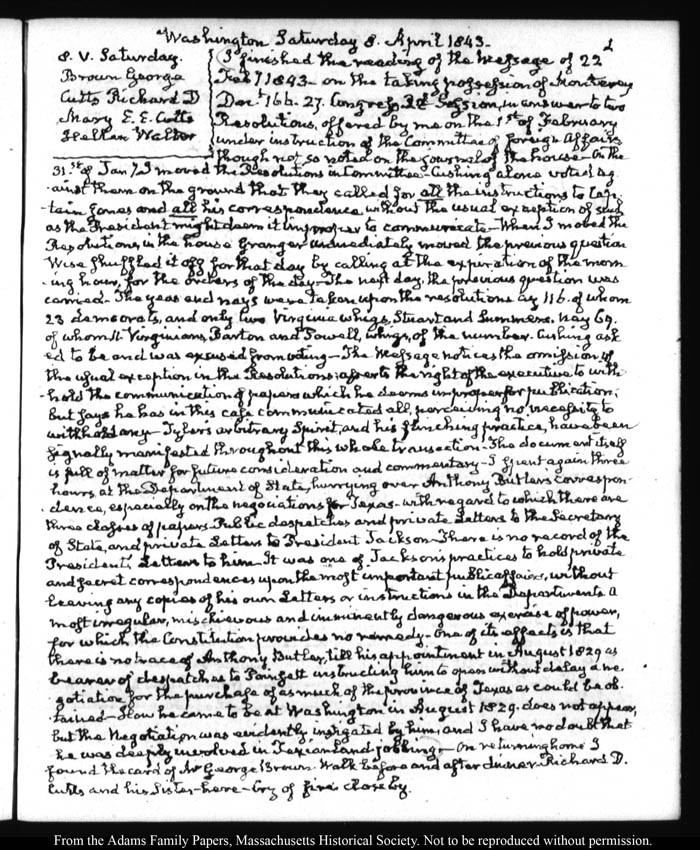 Washington Saturday 8. April 1843.
8. V. Saturday.
Brown George
Cutts Richard D
Mary E. E. Cutts
Hellen Walter
I finished the reading of the Message of 22
Feby 1843 – on the taking possession of Monterey
Doct. 166. 27. Congress 3d Session, in answer to two
Resolutions, offered by me on the 1st of February
under instruction of the Committee of foreign Affairs
though not so noted on the journal of the house – On the
31st of Jany I moved the Resolutions in Committee – Cushing alone voted ag-
ainst them on the ground that they called for all the instructions to Cap-
-tain Jones and all his correspondence without the usual exception of such
as the President might deem it improper to communicate – When I moved the
Resolutions, in the house Granger immediately moved the previous question
Wise shuffled it off for that day by calling at the expiration of the morn-
-ing hour, for the orders of the day – The next day, the previous question was
carried – The yeas and nays were taken upon the resolutions ay 116. of whom
23 democrats, and only two Virginia whigs, Stuart and Summers. nay 69.
of whom 11. Virginians, Barton and Powell, whigs, of the number. Cushing ask
ed to be and was excused from voting – The Message notices the omission of
the usual exception in the Resolutions; asserts the right of the executive to with-
-hold the communication of papers which he deems improper for publication;
but says he has in this case communicated all, perceiving no necessity to
withhold any – Tyler's arbitrary spirit, and his flinching practice, have been
signally manifested throughout this whole transaction – The document itself
is full of matter for future consideration and commentary – I spent again three
hours, at the Department of State, hurrying over Anthony Butler's correspon-
dence, especially on the negotiations for Texas – with regard to which there are
three classes of papers. Public despatches and private Letters to the Secretary
of State, and private Letters to President Jackson – There is no record of the
President's Letters to him – It was one of Jackson's practices to hold private
and secret correspondences upon the most important public affairs, without
leaving any copies of his own Letters or instructions in the Departments. A
most irregular, mischievous and imminently dangerous exercise of power,
for which the Constitution provides no remedy – One of its effects is that
there is no trace of Anthony Butler, till his appointment in August 1829 as
bearer of despatches to Poinsett instructing him to open without delay a ne-
gotiation for the purchase of as much of the province of Texas as could be ob-
tained – How he came to be at Washington in August 1829. does not appear,
but the Negotiation was evidently instigated by him, and I have no doubt that
he was deeply involved in Texian land jobbing – On returning home I
found the card of Mr George Brown. Walk before and after dinner. Richard D.
Cutts and his Sister – here – Cry of fire close by.
From the Adams Family Papers, Massachusetts Historical Society. Not to be reproduced without permission.